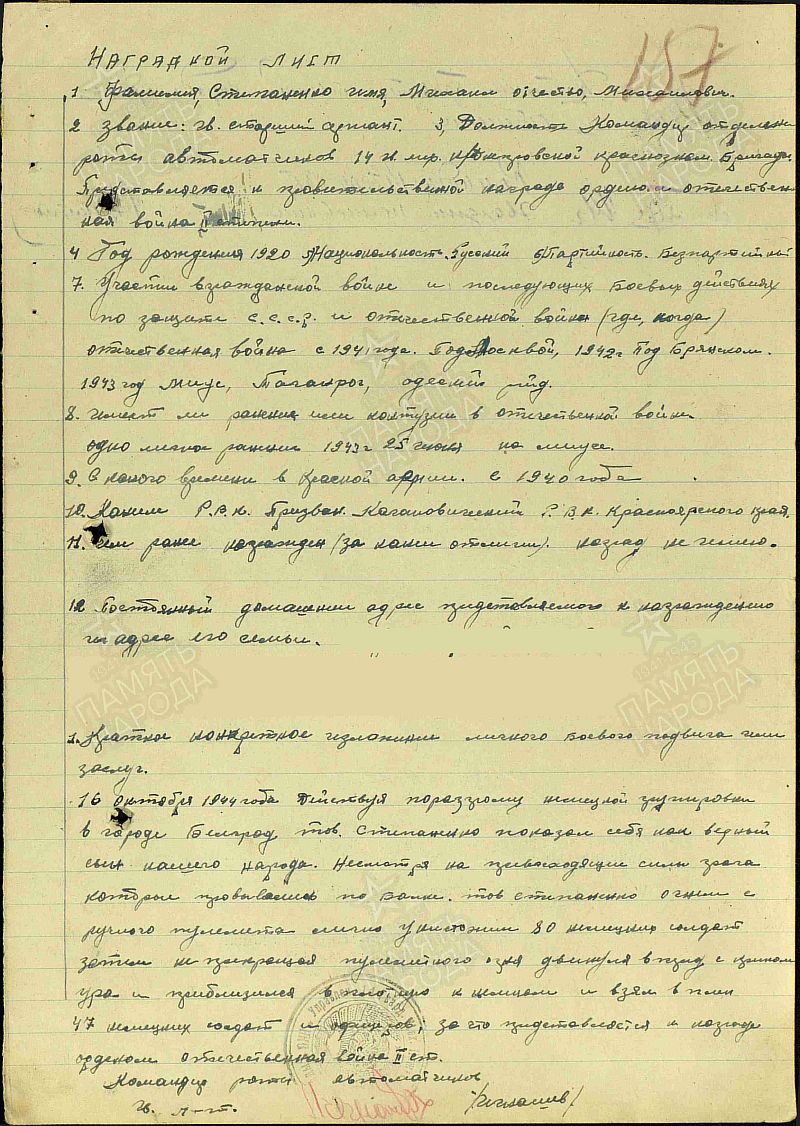 157
Наградной лист
1 Фамилия, Степаненко имя, Михаил отчество, Михайлович.
2 звание: гв. старший сержант. 3, Должность Командир отделени
роты автоматчиков 14 н. мпр. краснознам. Бригады
Представляется к правительственной награде ордену отечествен
ная война II степени.
4 Год рождения 1920 5/Национальность. Русский 6/Партийность. Безпартийный
7. Участии в гражданской войне и последующих Боевых действиях
по защите с.с.с.р. и отечественной война (где, когда)
отечественная война с 1941 года. Под Москвой, 1942г Под Брянском.
1943 год миус, Таганрог, одеский
8. имеет ли ранение или контузии в отечественной войне
одно легко ранение 1943г 25 июня на миусе.
9. С какого времени в Красной армии. с 1940 года
10. Каким Р.В.К. Призван. Кагановический Р.В.К. Красноярского края.
11. чем ранее награжден (за какие отличия). наград не имею.
12 Постоянный домашнии адрес представляемого к награждению
и адрес его семьи.
1. Краткое конкретное изложение личного Боевого подвига или
заслуг.
16 октября 1944 года Действуя поразгрому немецкой групировки
в городе Белград тов. Степаненко показал себя как верный
сын нашего народа. Несмотря на превосходящие силы врага
которые прорывались по Балке. тов степаненко огнем с
ручного пулемета лично уничтожил 80 немецких солдат
затем не прекращая пулеметного огня двинулся вперед с криком
ура и приблизился в плотную к немцам и взял в плен
47 немецких солдат и офицеров, за что представляется к награде
орденом отечественная война II ст.
Командир роты автоматчиков
гв. л-т. /Игнашев/
1941-1945
ПАМЯТЬ
НАРОДА